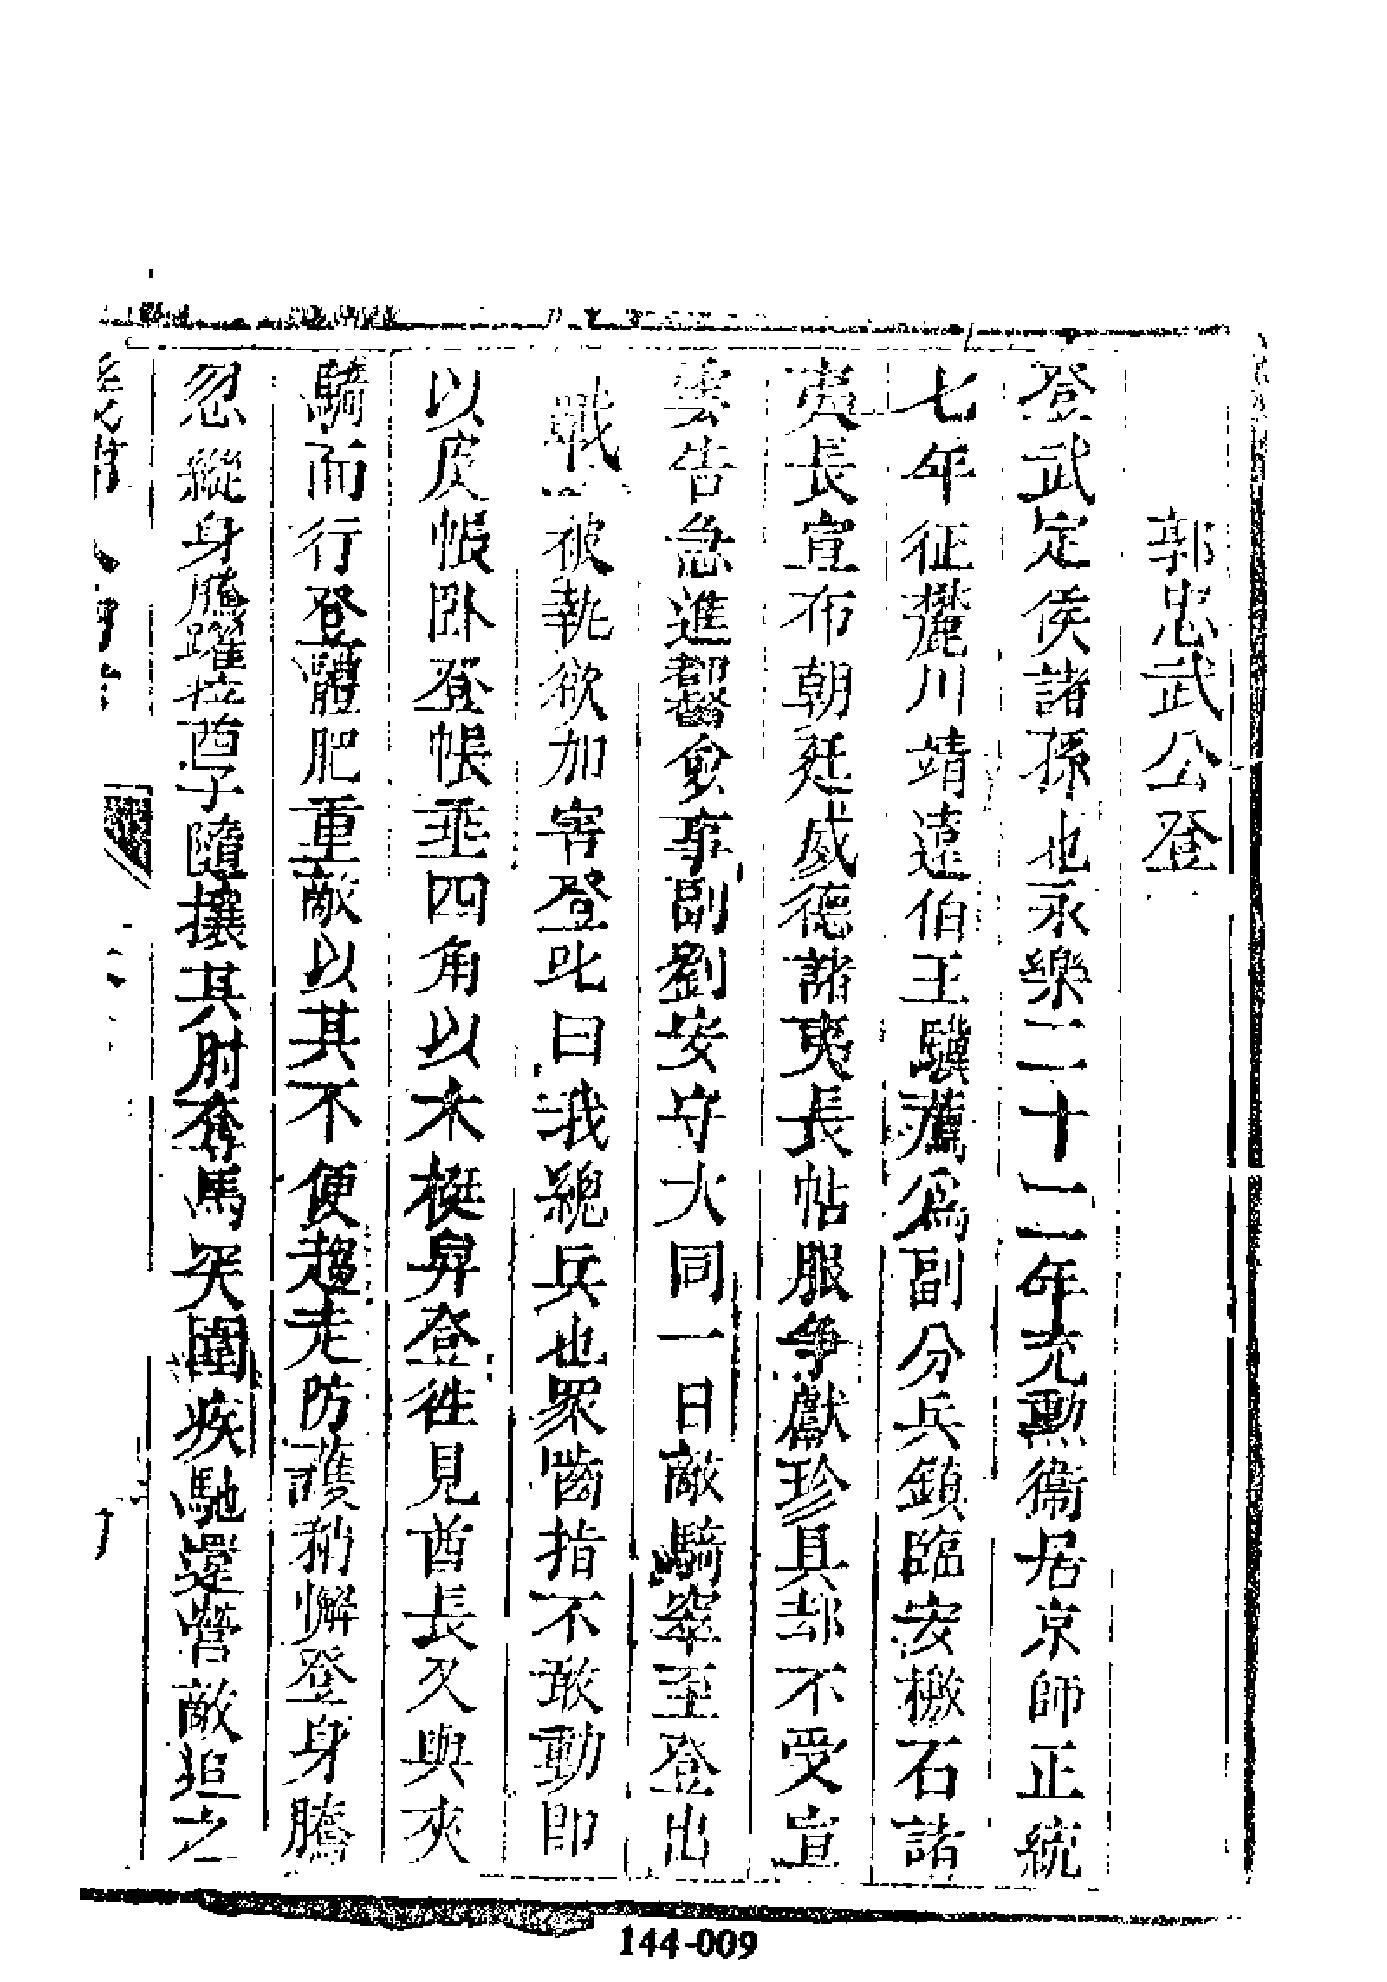 郭忠武公登
登武定侯諸孫也永樂二十二年充勲衞居京師正統
七年征麓川靖遠伯王驥薦爲副分兵鎮臨安檄石諸
夷長宣布朝廷威德諸夷長帖服争獻珍具却不受宣
雲告急進都督僉事副劉安守大同一日敵騎窣至登出
戰被執欲加害登叱曰我總兵也眾嚙指不敢動即
以皮帳卧登帳垂四角以木梃舁登徃見酋長又與夾
騎而行登體肥重敵以其不便趨走防護稍懈登身騰
忽縱身騰躍拉酋子隨攘其肘奪馬突圍疾馳還營敵追之
144-009